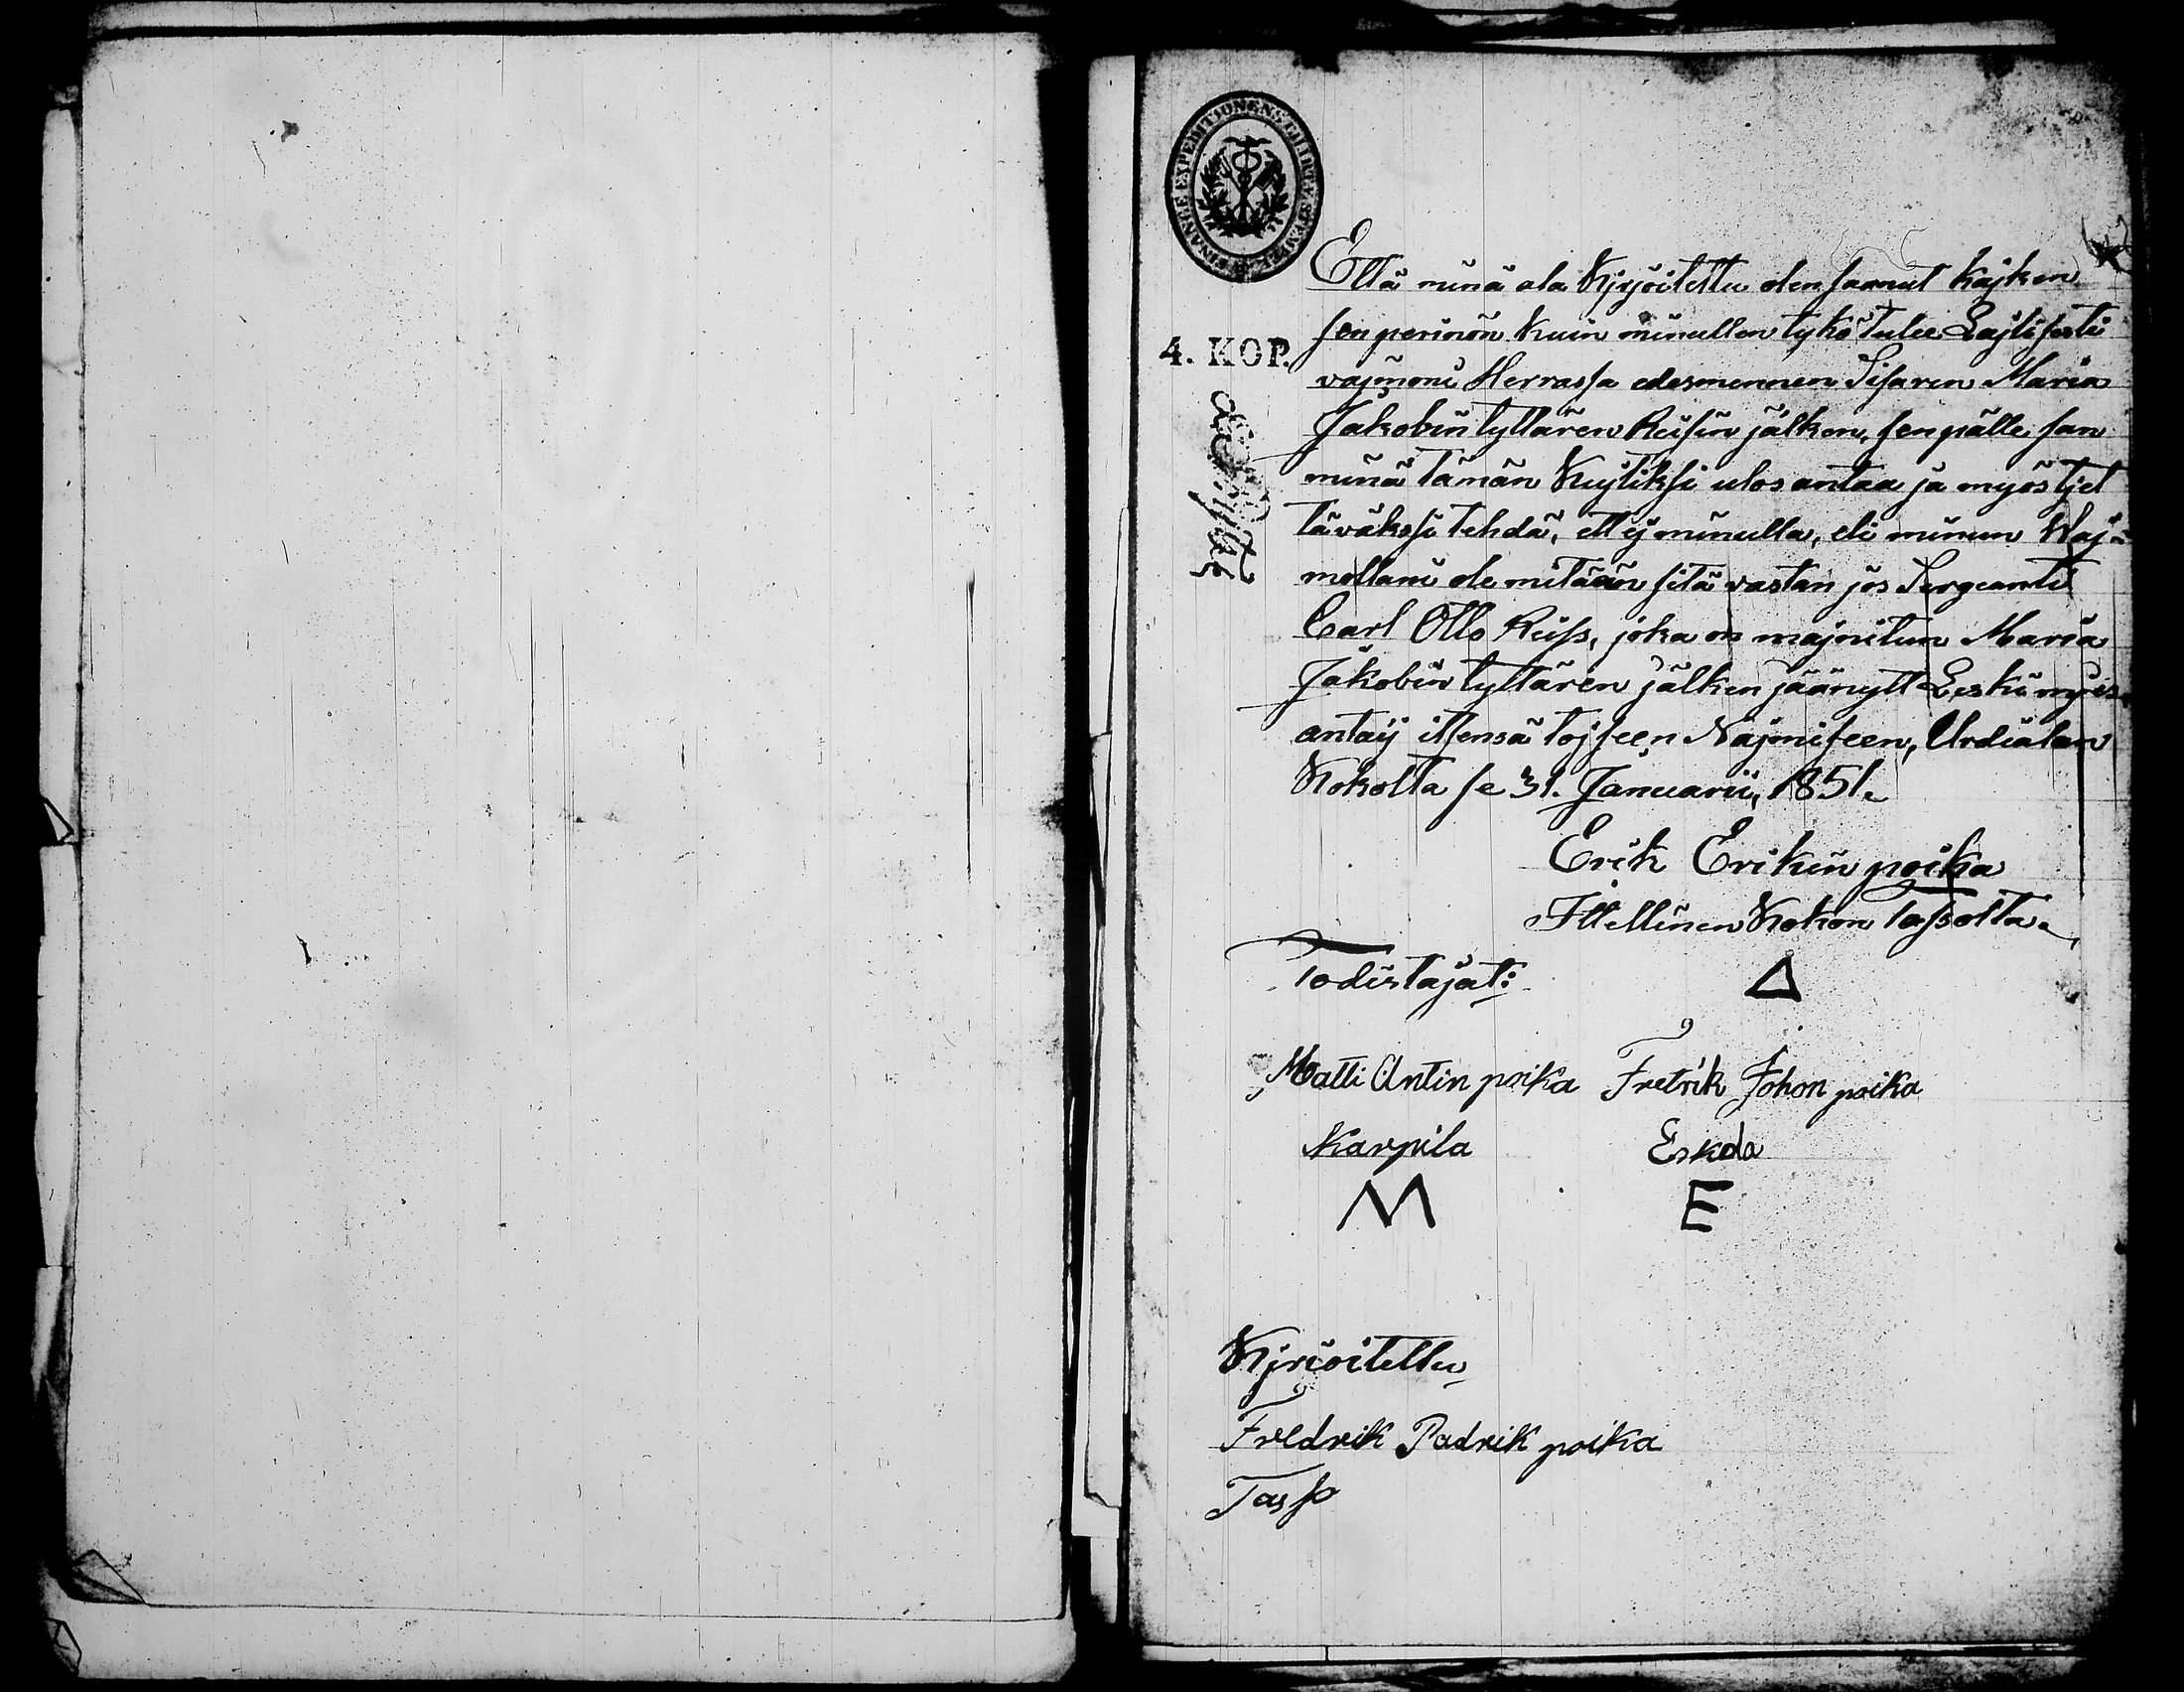 FINANCE EXPEDITIONENS CHARTÆ STEMPEL
4. KOP.
Että minä ala Kirjoitettu olen saanut kajken
sen perinön kuin minullen tykö tulee Lajlisesti
vajmoni Herrassa edesmennen Sisaren Maria
Jakobin tyttären Reisin jälken, sen pälle san
minä tämän Kujtiksi ulos antaa ja myös tjet
täväksi tehdä, ett ej minulla, eli minun Waj-
mollani ole mitään sitä vastan jos Sergeanti
Carl Otto Reiss, joka on majnitun Maria
Jakobin tyttären jälken jäänytt Leski mjes
antaij itsensä tojseen Najmiseen, Urdialan
Kokolta se 31. Januarii, 1851.
Erik Erikin poika
Ittellinen Kokon Tassolta.
Todistajat:
Matti Antin poika Fretrik Johon poika
Karpila Eskola
M E
Kirioitettu
Fredrik Padrik poika
Tasso